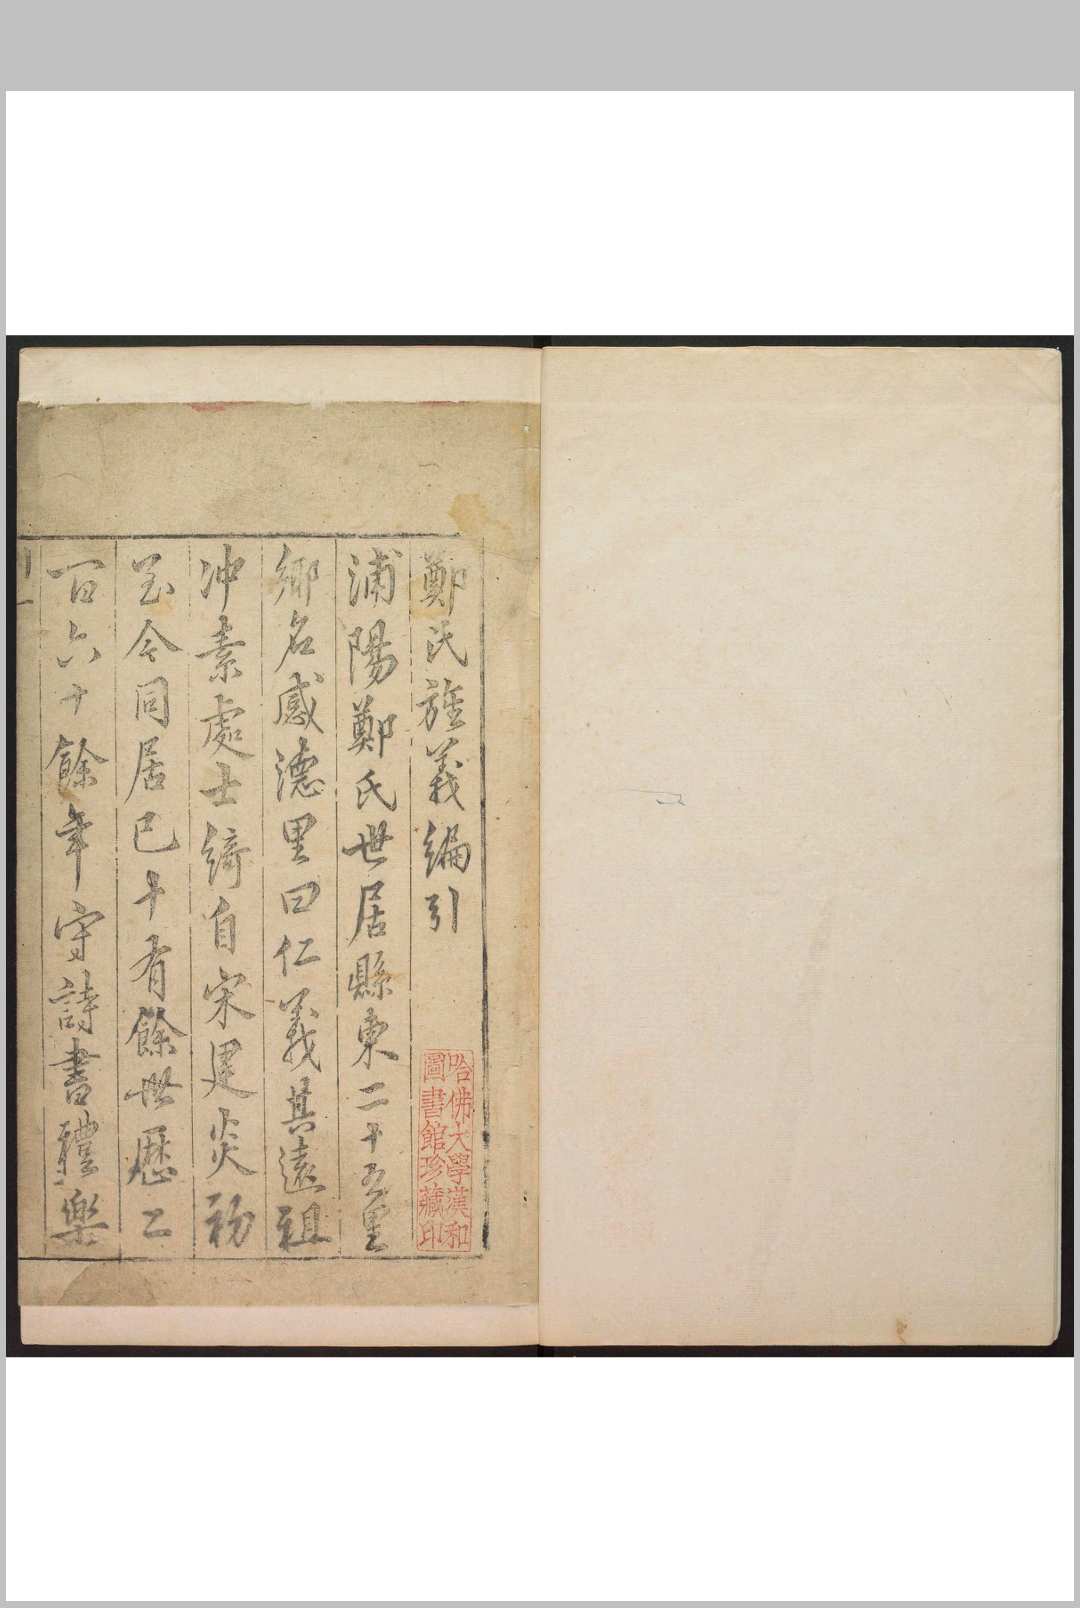 鄭氏旌義編引
浦陽鄭氏世居縣東二十五里
鄉名感德里曰仁義其遠祖
沖素處士綺自宋建炎初
至今同居已十有餘世歷二
百六十餘年守詩書禮樂
哈佛大學漢和
圖書館珍藏印